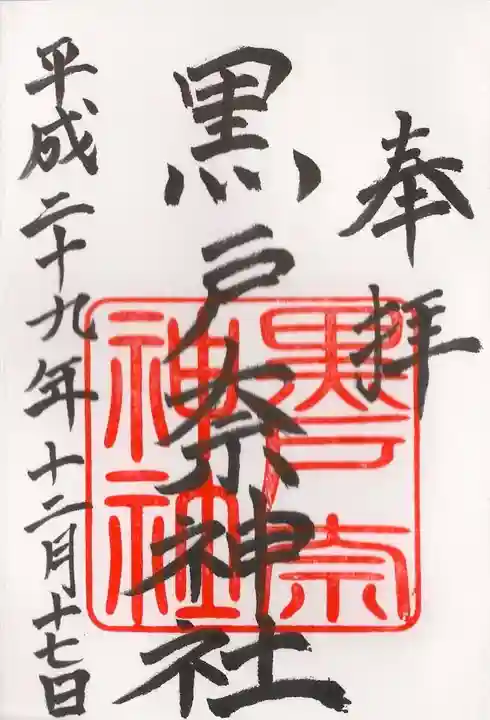 奉拝
黒戸奈神社
平成二十九年十二月十七日
黒戸奈
神社